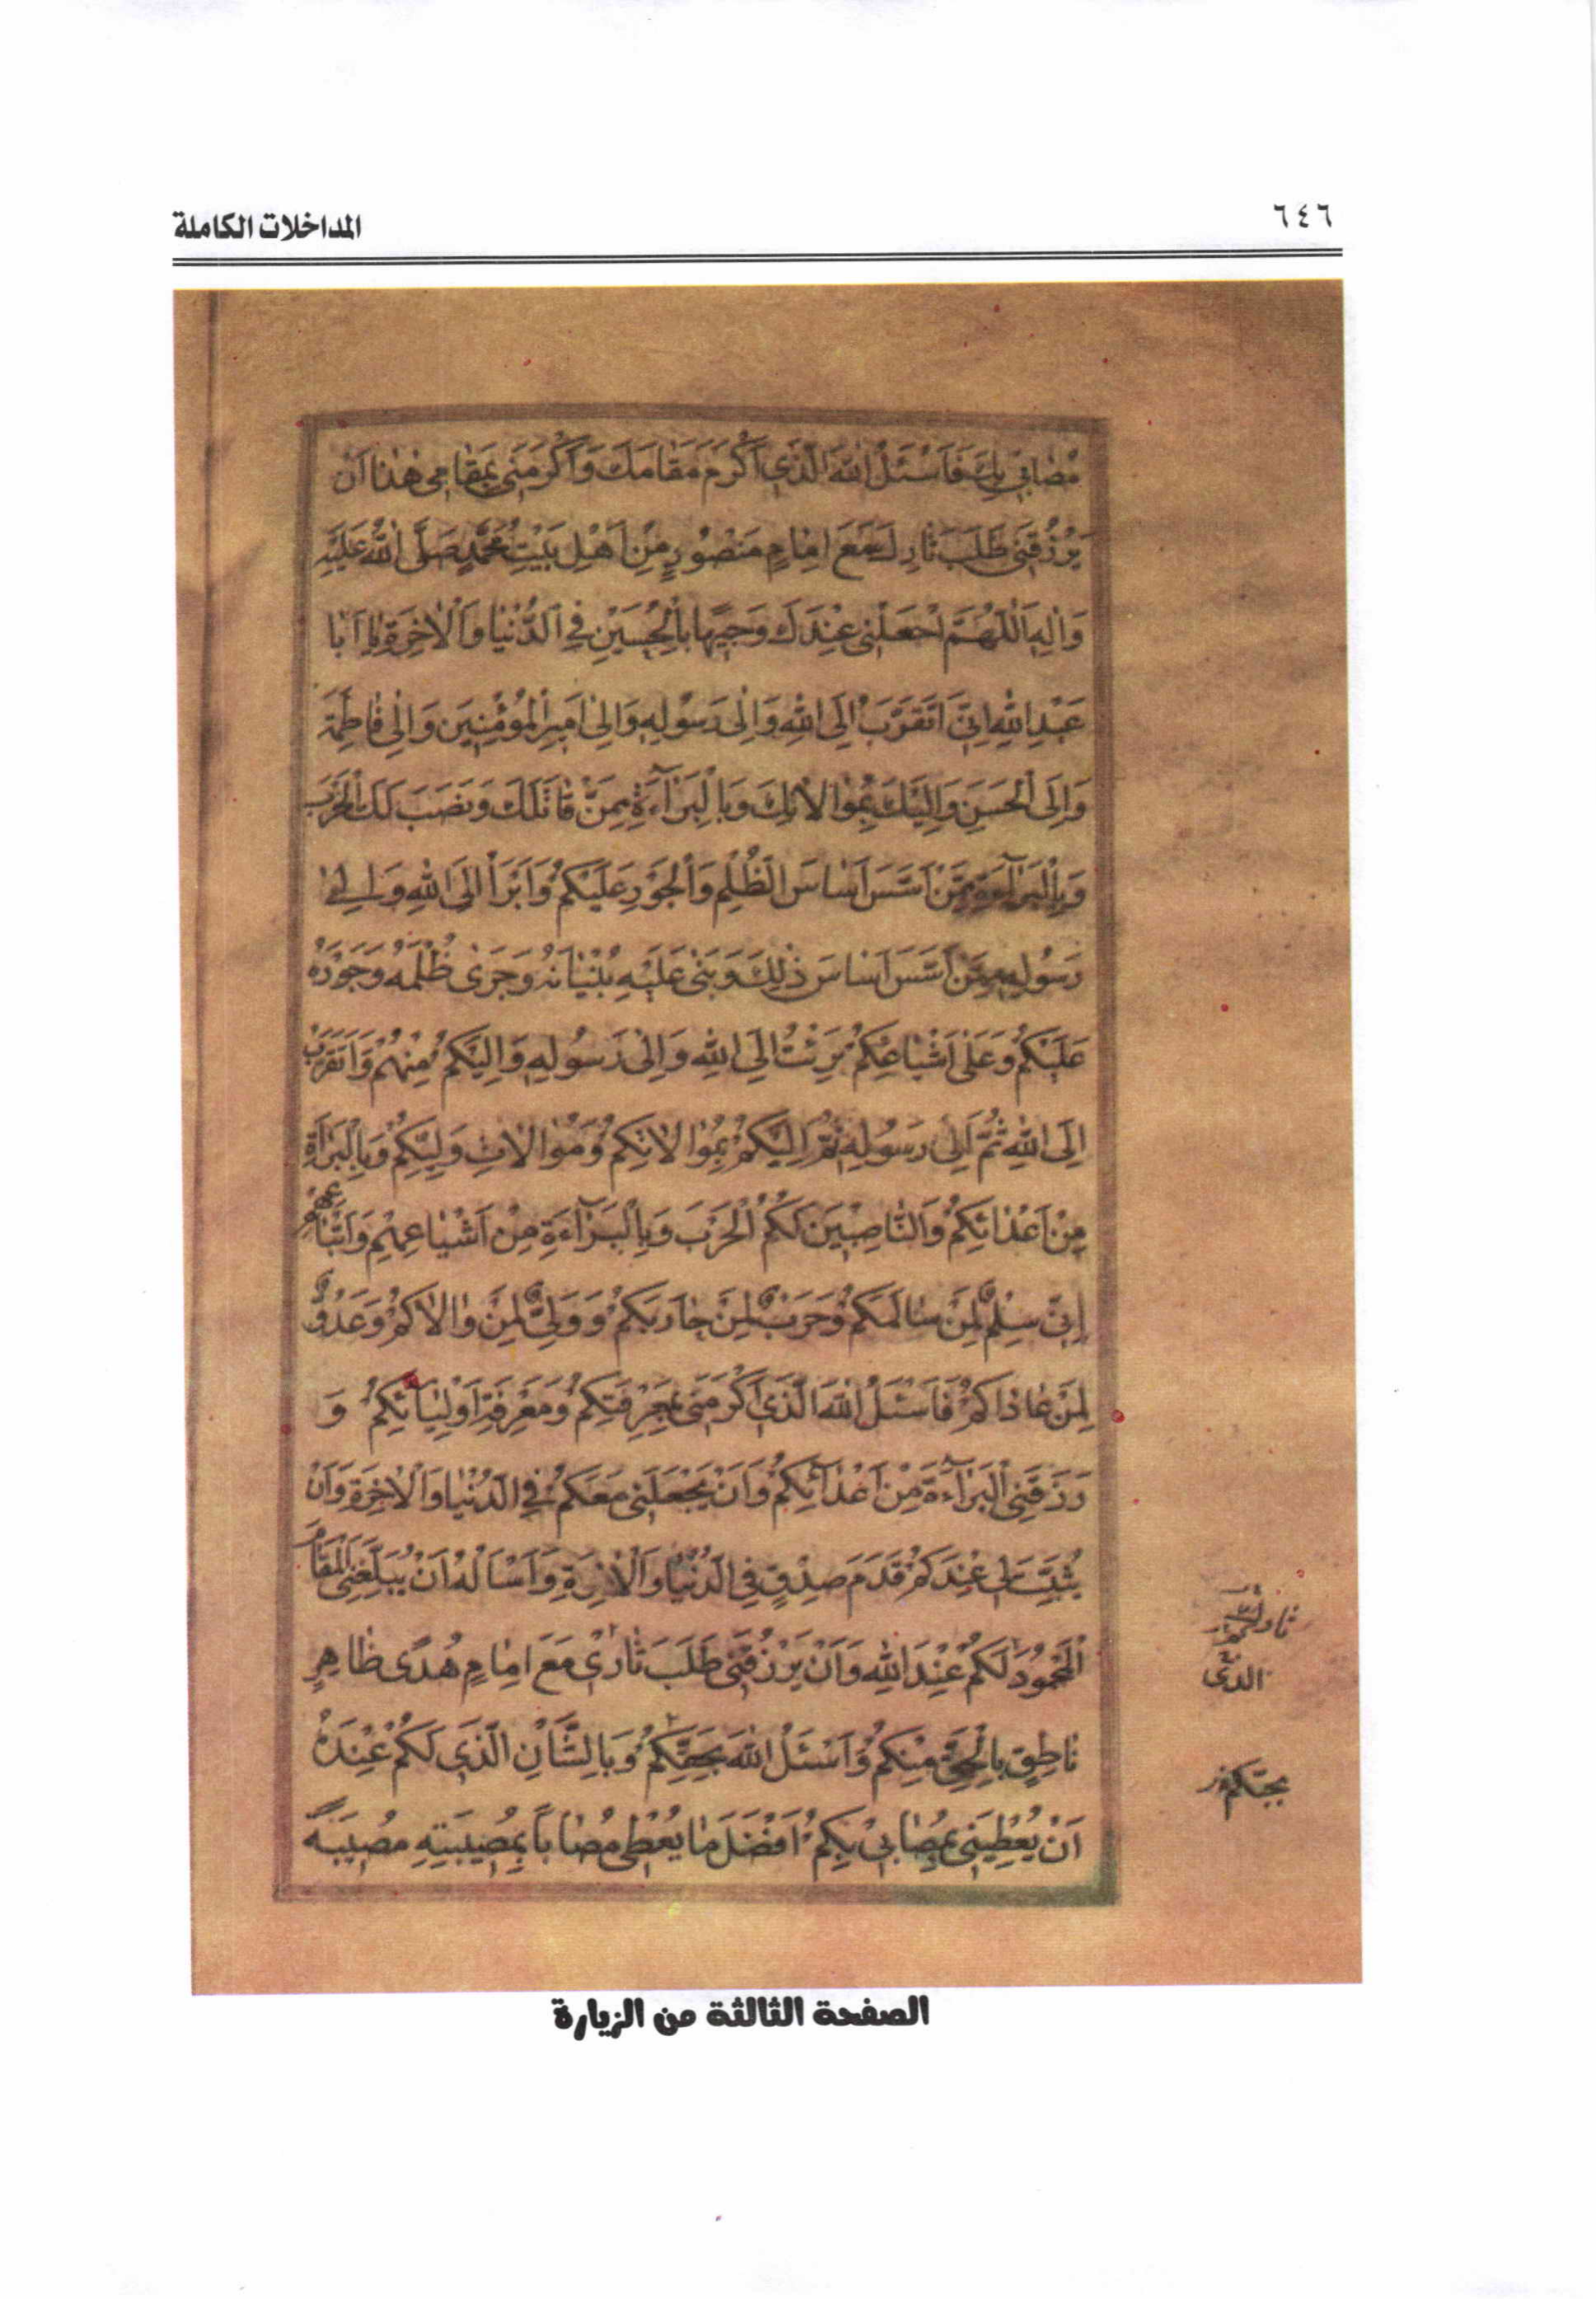 ٦٤٦
المداخلات الكاملة
مُصٰابي بِكَ فَاَسْئَلُ اللّٰهَ الَّذي اَكْرَمَ مَقٰامَكَ وَاَكْرَمَني بِمَقٰامي هٰذا اَنْ
يَرْزُقَني طَلَبَ ثارِكَ مَعَ اِمٰامٍ مَنْصُورٍ مِنْ اَهْلِ بَيْتِ مُحَمَّدٍ صَلَّى اللّٰهُ عَلَيْهِ
وَاٰلِهِ اَللّٰهُمَّ اجْعَلْني عِنْدَكَ وَجيهًا بِالْحُسَيْنِ فِي الدُّنْيٰا وَالْاٰخِرَةِ يٰا اَبٰا
عَبْدِ اللّٰهِ اِنّي اَتَقَرَّبُ اِلَى اللّٰهِ وَاِلىٰ رَسُولِهِ وَاِلىٰ اَميرِ الْمُؤْمِنينَ وَاِلىٰ فٰاطِمَةَ
وَاِلَى الْحَسَنِ وَاِلَيْكَ بِمُوٰالاٰتِكَ وَبِالْبَرٰاۤءَةِ مِمَّنْ قٰاتَلَكَ وَنَصَبَ لَكَ الْحَرْبَ
وَبِالْبَرٰاۤءَةِ مِمَّنْ اَسَّسَ اَسٰاسَ الظُّلْمِ وَالْجَوْرِ عَلَيْكُمْ وَاَبْرَأُ اِلَى اللّٰهِ وَاِلىٰ
رَسُولِهِ مِمَّنْ اَسَّسَ اَسٰاسَ ذٰلِكَ وَبَنىٰ عَلَيْهِ بُنْيٰانَهُ وَجَرىٰ ظُلْمُهُ وَجَوْرُهُ
عَلَيْكُمْ وَعَلىٰ اَشْيٰاعِكُمْ بَرِئْتُ اِلَى اللّٰهِ وَاِلىٰ رَسُولِهِ وَاِلَيْكُمْ مِنْهُمْ وَاَتَقَرَّبُ
اِلَى اللّٰهِ ثُمَّ اِلىٰ رَسُولِهِ ثُمَّ اِلَيْكُمْ بِمُوٰالاٰتِكُمْ وَمُوٰالاٰتِ وَلِيِّكُمْ وَبِالْبَرٰاۤءَةِ
مِنْ اَعْدٰائِكُمْ وَالنّٰاصِبينَ لَكُمُ الْحَرْبَ وَبِالْبَرٰاۤءَةِ مِنْ اَشْيٰاعِهِمْ وَاَتْبٰاعِهِمْ
اِنّي سِلْمٌ لِمَنْ سٰالَمَكُمْ وَحَرْبٌ لِمَنْ حٰارَبَكُمْ وَوَلِيٌّ لِمَنْ وٰالاٰكُمْ وَعَدُوٌّ
لِمَنْ عٰادٰاكُمْ فَاَسْئَلُ اللّٰهَ الَّذي اَكْرَمَني بِمَعْرِفَتِكُمْ وَمَعْرِفَةِ اَوْلِيٰاۤئِكُمْ وَ
رَزَقَنِي الْبَرٰاۤءَةَ مِنْ اَعْدٰاۤئِكُمْ وَاَنْ يَجْعَلَني مَعَكُمْ فِي الدُّنْيٰا وَالْاٰخِرَةِ وَاَنْ
يُثَبِّتَ لي عِنْدَكُمْ قَدَمَ صِدْقٍ فِي الدُّنْيٰا وَالْاٰخِرَةِ وَاَسْاَلُهُ اَنْ يُبَلِّغَنِي الْمَقٰامَ
الْمَحْمُودَ لَكُمْ عِنْدَ اللّٰهِ وَاَنْ يَرْزُقَني طَلَبَ ثٰاري مَعَ اِمٰامٍ هُدًى ظٰاهِرٍ
نٰاطِقٍ بِالْحَقِّ مِنْكُمْ وَاَسْئَلُ اللّٰهَ بِحَقِّكُمْ وَبِالشَّأْنِ الَّذي لَكُمْ عِنْدَهُ
اَنْ يُعْطِيَني بِمُصٰابي بِكُمْ اَفْضَلَ مٰا يُعْطي مُصٰابًا بِمُصيبَتِهِ مُصيبَةً
الصفحة الثالثة من الزيارة